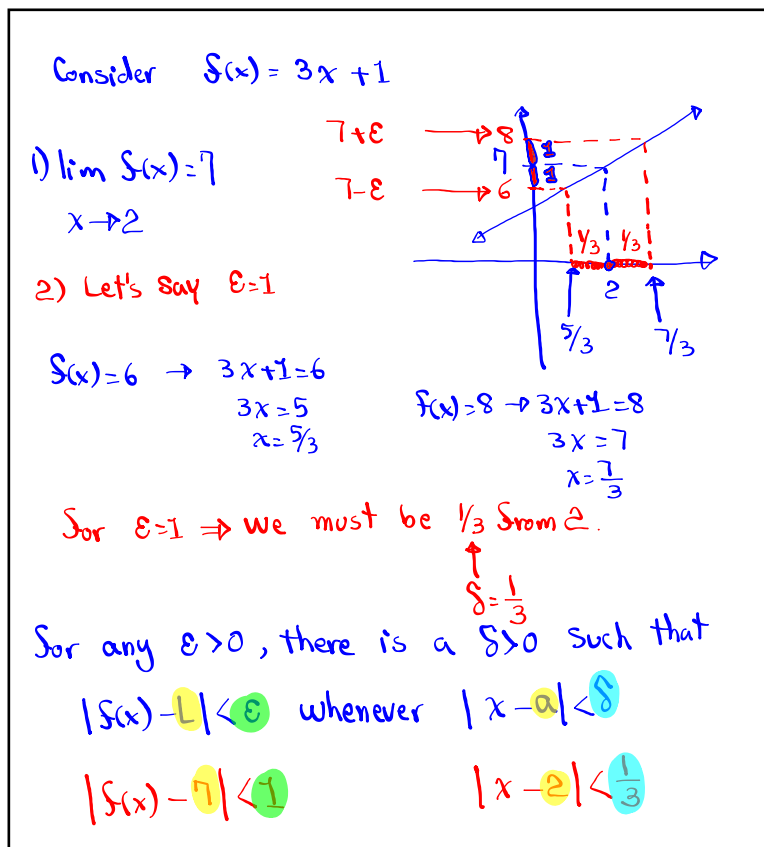 Consider f(x) = 3x + 1
1) lim f(x) = 7
x→2
7+ε → 8
7
7-ε → 6
1
1
1/3 1/3
2
5/3
7/3
2) Let's say ε=1
f(x)=6 → 3x+1=6
3x=5
x=5/3
f(x)=8 → 3x+1=8
3x=7
x=7/3
for ε=1 ⇒ we must be 1/3 from 2.
δ=1/3
for any ε>0, there is a δ>0 such that
|f(x)-L|<ε whenever |x-a|<δ
|f(x)-7|<1 |x-2|<1/3